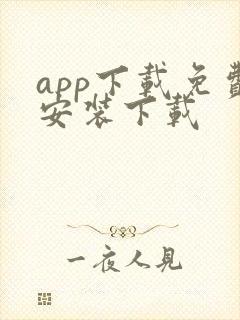 app下載免費
安裝下載
一夜人見